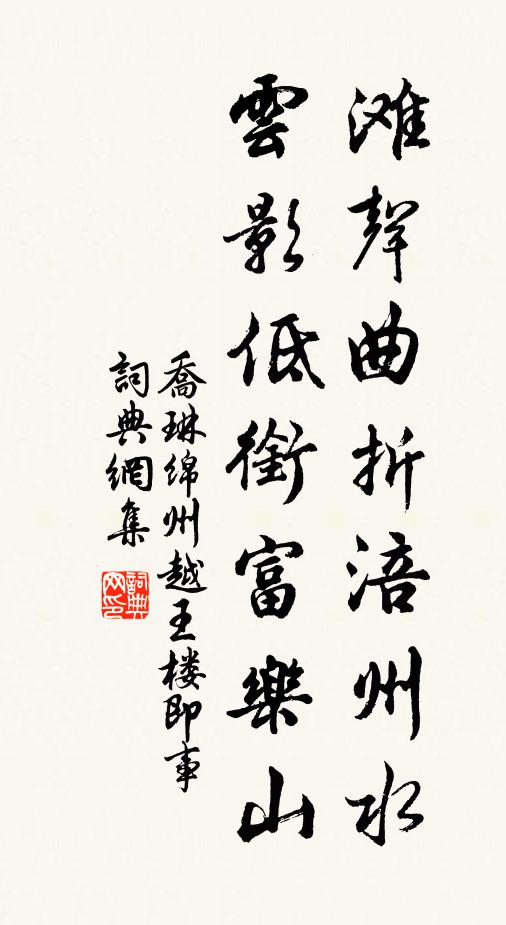 滩聲曲折涪州水
雲影低銜富樂山
喬琳绵州越王楼即事
詞典網集
詞典
网印